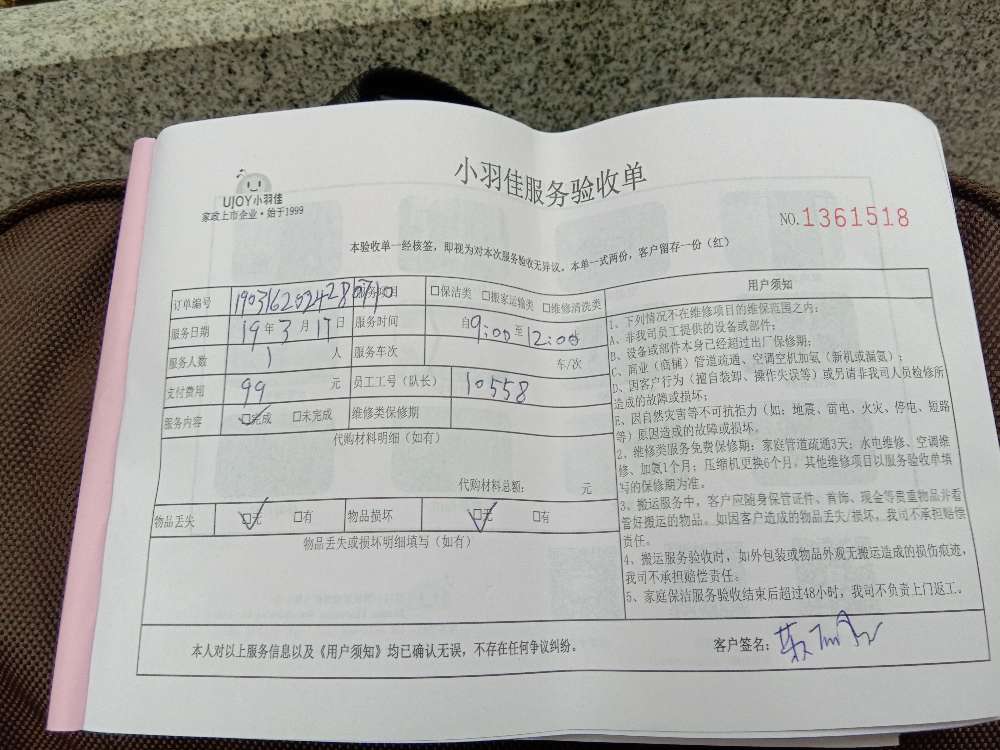 UJOY小羽佳
家政上市企业·始于1999
小羽佳服务验收单
NO.1361518
本验收单一经核签，即视为对本次服务验收无异议。本单一式两份，客户留存一份（红）
订单编号 服务项目 □保洁类 □搬家运输类 □维修清洗类
服务日期 19年3月17日 服务时间 自9:00至12:00
服务人数 1 人 服务车次 车/次
支付费用 99 元 员工工号（队长） 10558
服务内容 □完成 □未完成 维修类保修期
代购材料明细（如有）
代购材料总额： 元
物品丢失 □无 □有 物品损坏 □无 □有
物品丢失或损坏明细填写（如有）
用户须知
1、下列情况不在维修项目的维保范围之内：
A、非我司员工提供的设备或部件；
B、设备或部件本身已经超过出厂保修期；
C、商业（商铺）管道疏通、空调空机加氨（新机或漏氨）；
D、因客户行为（擅自装卸、操作失误等）或另请非我司人员检修所
造成的故障或损坏；
E、因自然灾害等不可抗拒力（如：地震、雷电、火灾、停电、短路
等）原因造成的故障或损坏。
2、维修类服务免费保修期：家庭管道疏通3天；水电维修、空调维
修、加氨1个月；压缩机更换6个月，其他维修项目以服务验收单填
写的保修期为准。
3、搬运服务中，客户应随身保管证件、首饰、现金等贵重物品并看
管好搬运的物品。如因客户造成的物品丢失/损坏，我司不承担赔偿
责任。
4、搬运服务验收时，如外包装或物品外观无搬运造成的损伤痕迹，
我司不承担赔偿责任。
5、家庭保洁服务验收结束后超过48小时，我司不负责上门返工。
本人对以上服务信息以及《用户须知》均已确认无误，不存在任何争议纠纷。 客户签名：